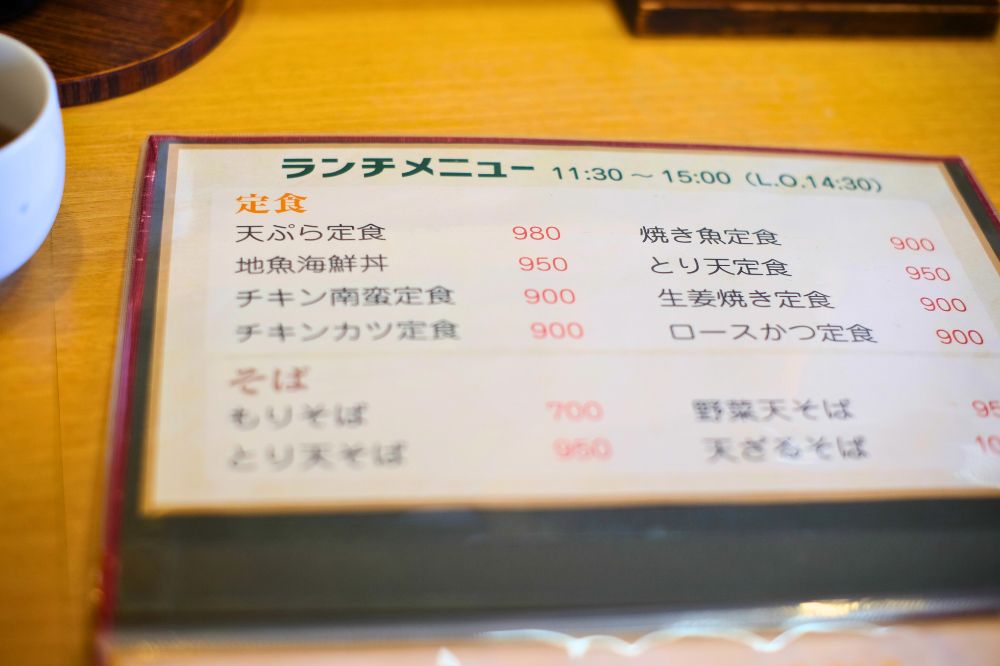 ランチメニュー 11:30～15:00（L.O.14:30）
定食
天ぷら定食 980 焼き魚定食 900
地魚海鮮丼 950 とり天定食 950
チキン南蛮定食 900 生姜焼き定食 900
チキンカツ定食 900 ロースかつ定食 900
そば
もりそば 700 野菜天そば
とり天そば 950 天ざるそば